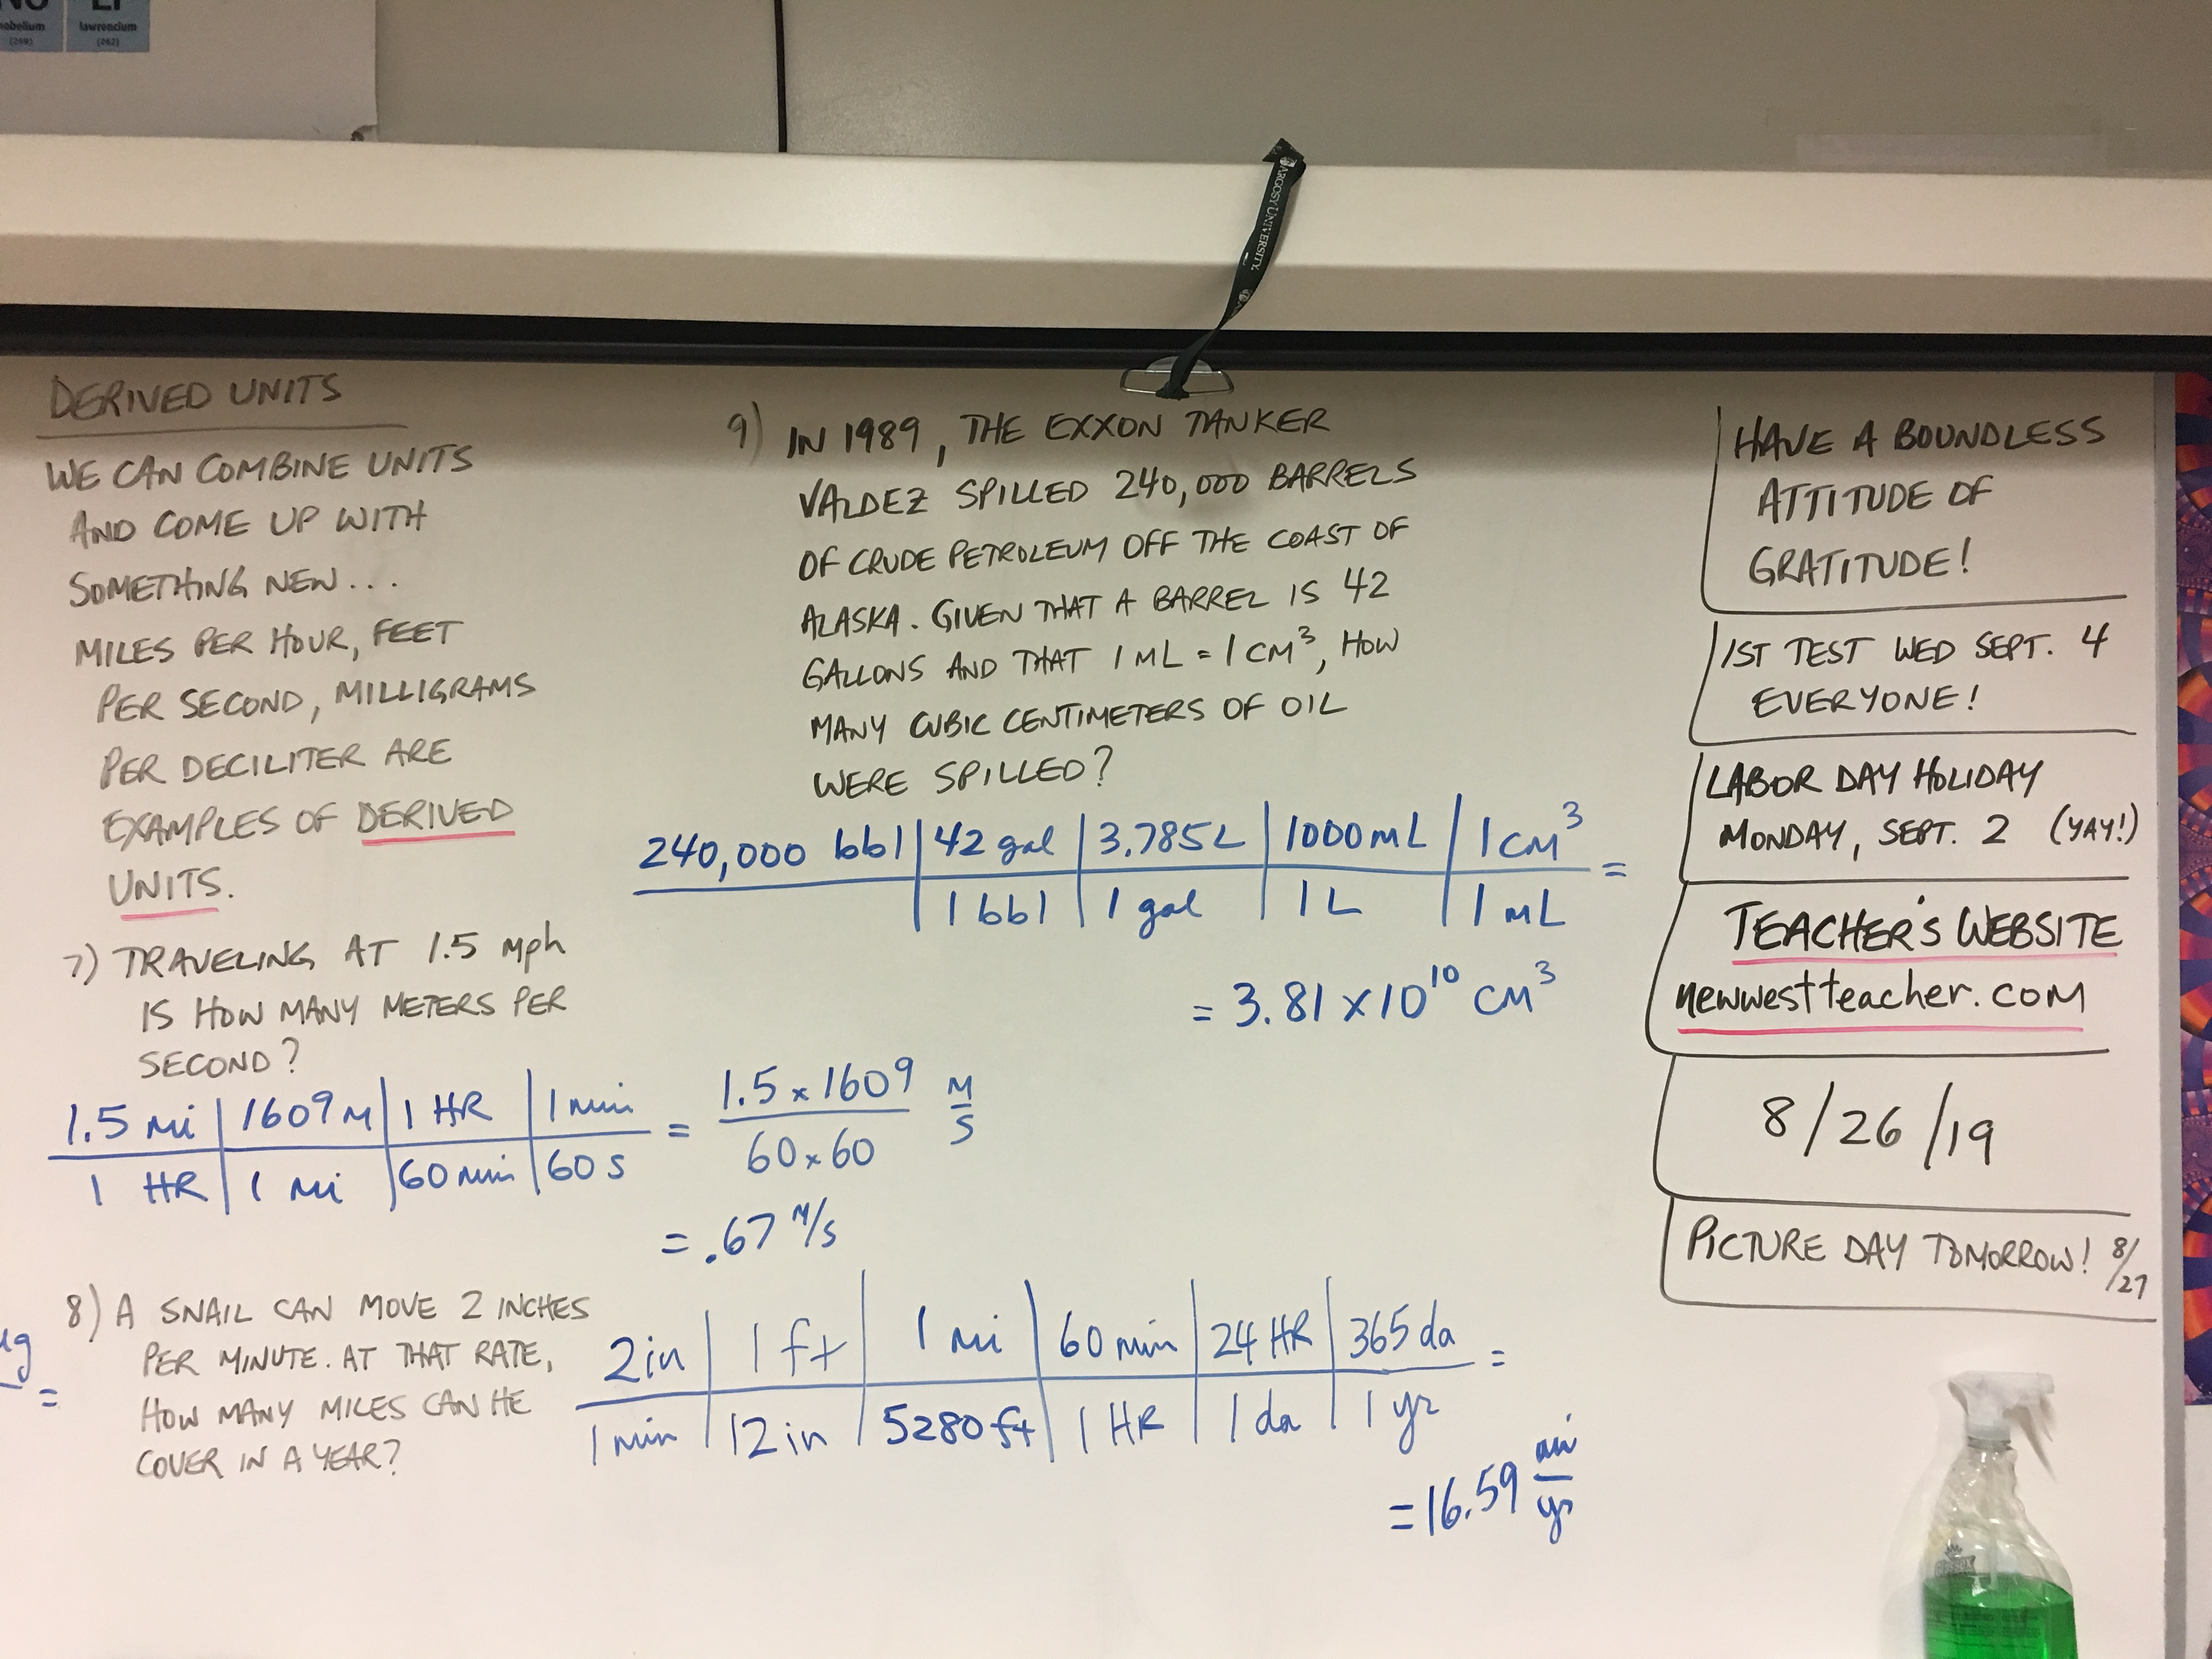 lawrencium
(262)
ARGOSY UNIVERSITY
DERIVED UNITS
WE CAN COMBINE UNITS
AND COME UP WITH
SOMETHING NEW...
MILES PER HOUR, FEET
PER SECOND, MILLIGRAMS
PER DECILITER ARE
EXAMPLES OF DERIVED
UNITS.
7) TRAVELING AT 1.5 mph
IS HOW MANY METERS PER
SECOND?
1.5 mi | 1609 M | 1 HR | 1 min
1 HR | 1 mi | 60 min | 60 S
= 1.5 x 1609 M
60 x 60 S
= .67 M/S
8) A SNAIL CAN MOVE 2 INCHES
PER MINUTE. AT THAT RATE,
HOW MANY MILES CAN HE
COVER IN A YEAR?
=
2 in | 1 ft | 1 mi | 60 min | 24 HR | 365 da =
1 min | 12 in | 5280 ft | 1 HR | 1 da | 1 yr
= 16.59 mi
yr
9) IN 1989, THE EXXON TANKER
VALDEZ SPILLED 240,000 BARRELS
OF CRUDE PETROLEUM OFF THE COAST OF
ALASKA. GIVEN THAT A BARREL IS 42
GALLONS AND THAT 1 mL = 1 CM³, HOW
MANY CUBIC CENTIMETERS OF OIL
WERE SPILLED?
240,000 bbl | 42 gal | 3.785 L | 1000 mL | 1 CM³ =
1 bbl | 1 gal | 1 L | 1 mL
= 3.81 x 10¹⁰ CM³
HAVE A BOUNDLESS
ATTITUDE OF
GRATITUDE!
1ST TEST WED SEPT. 4
EVERYONE!
LABOR DAY HOLIDAY
MONDAY, SEPT. 2 (YAY!)
TEACHER'S WEBSITE
newwestteacher.com
8/26/19
PICTURE DAY TOMORROW! 8/27